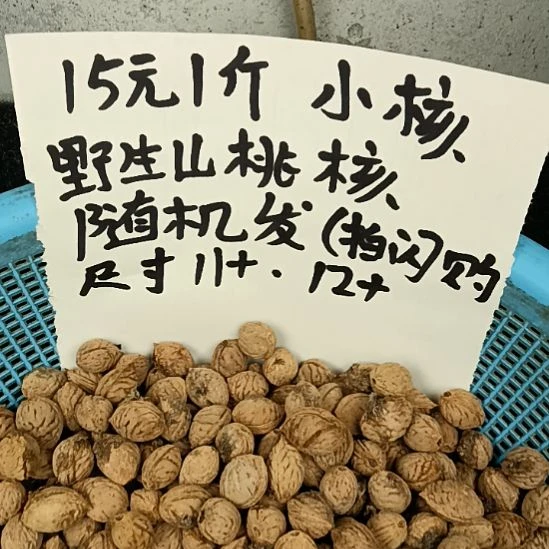 15元1斤 小核
野生山桃核
随机发(拍闪购
尺寸11+. 12+